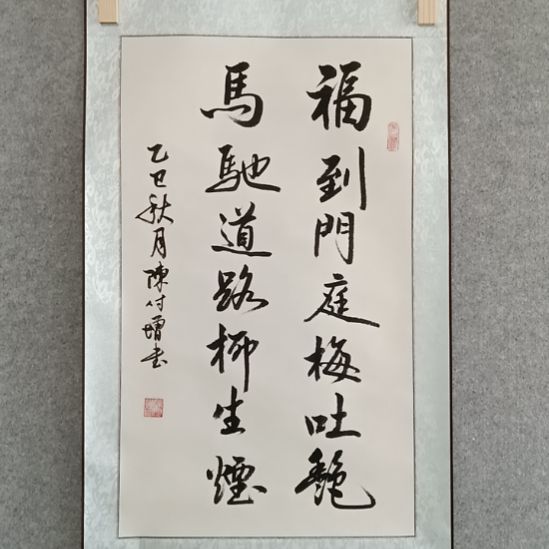 福到門庭梅吐艷
馬馳道路柳生煙
乙巳秋月陳付增书